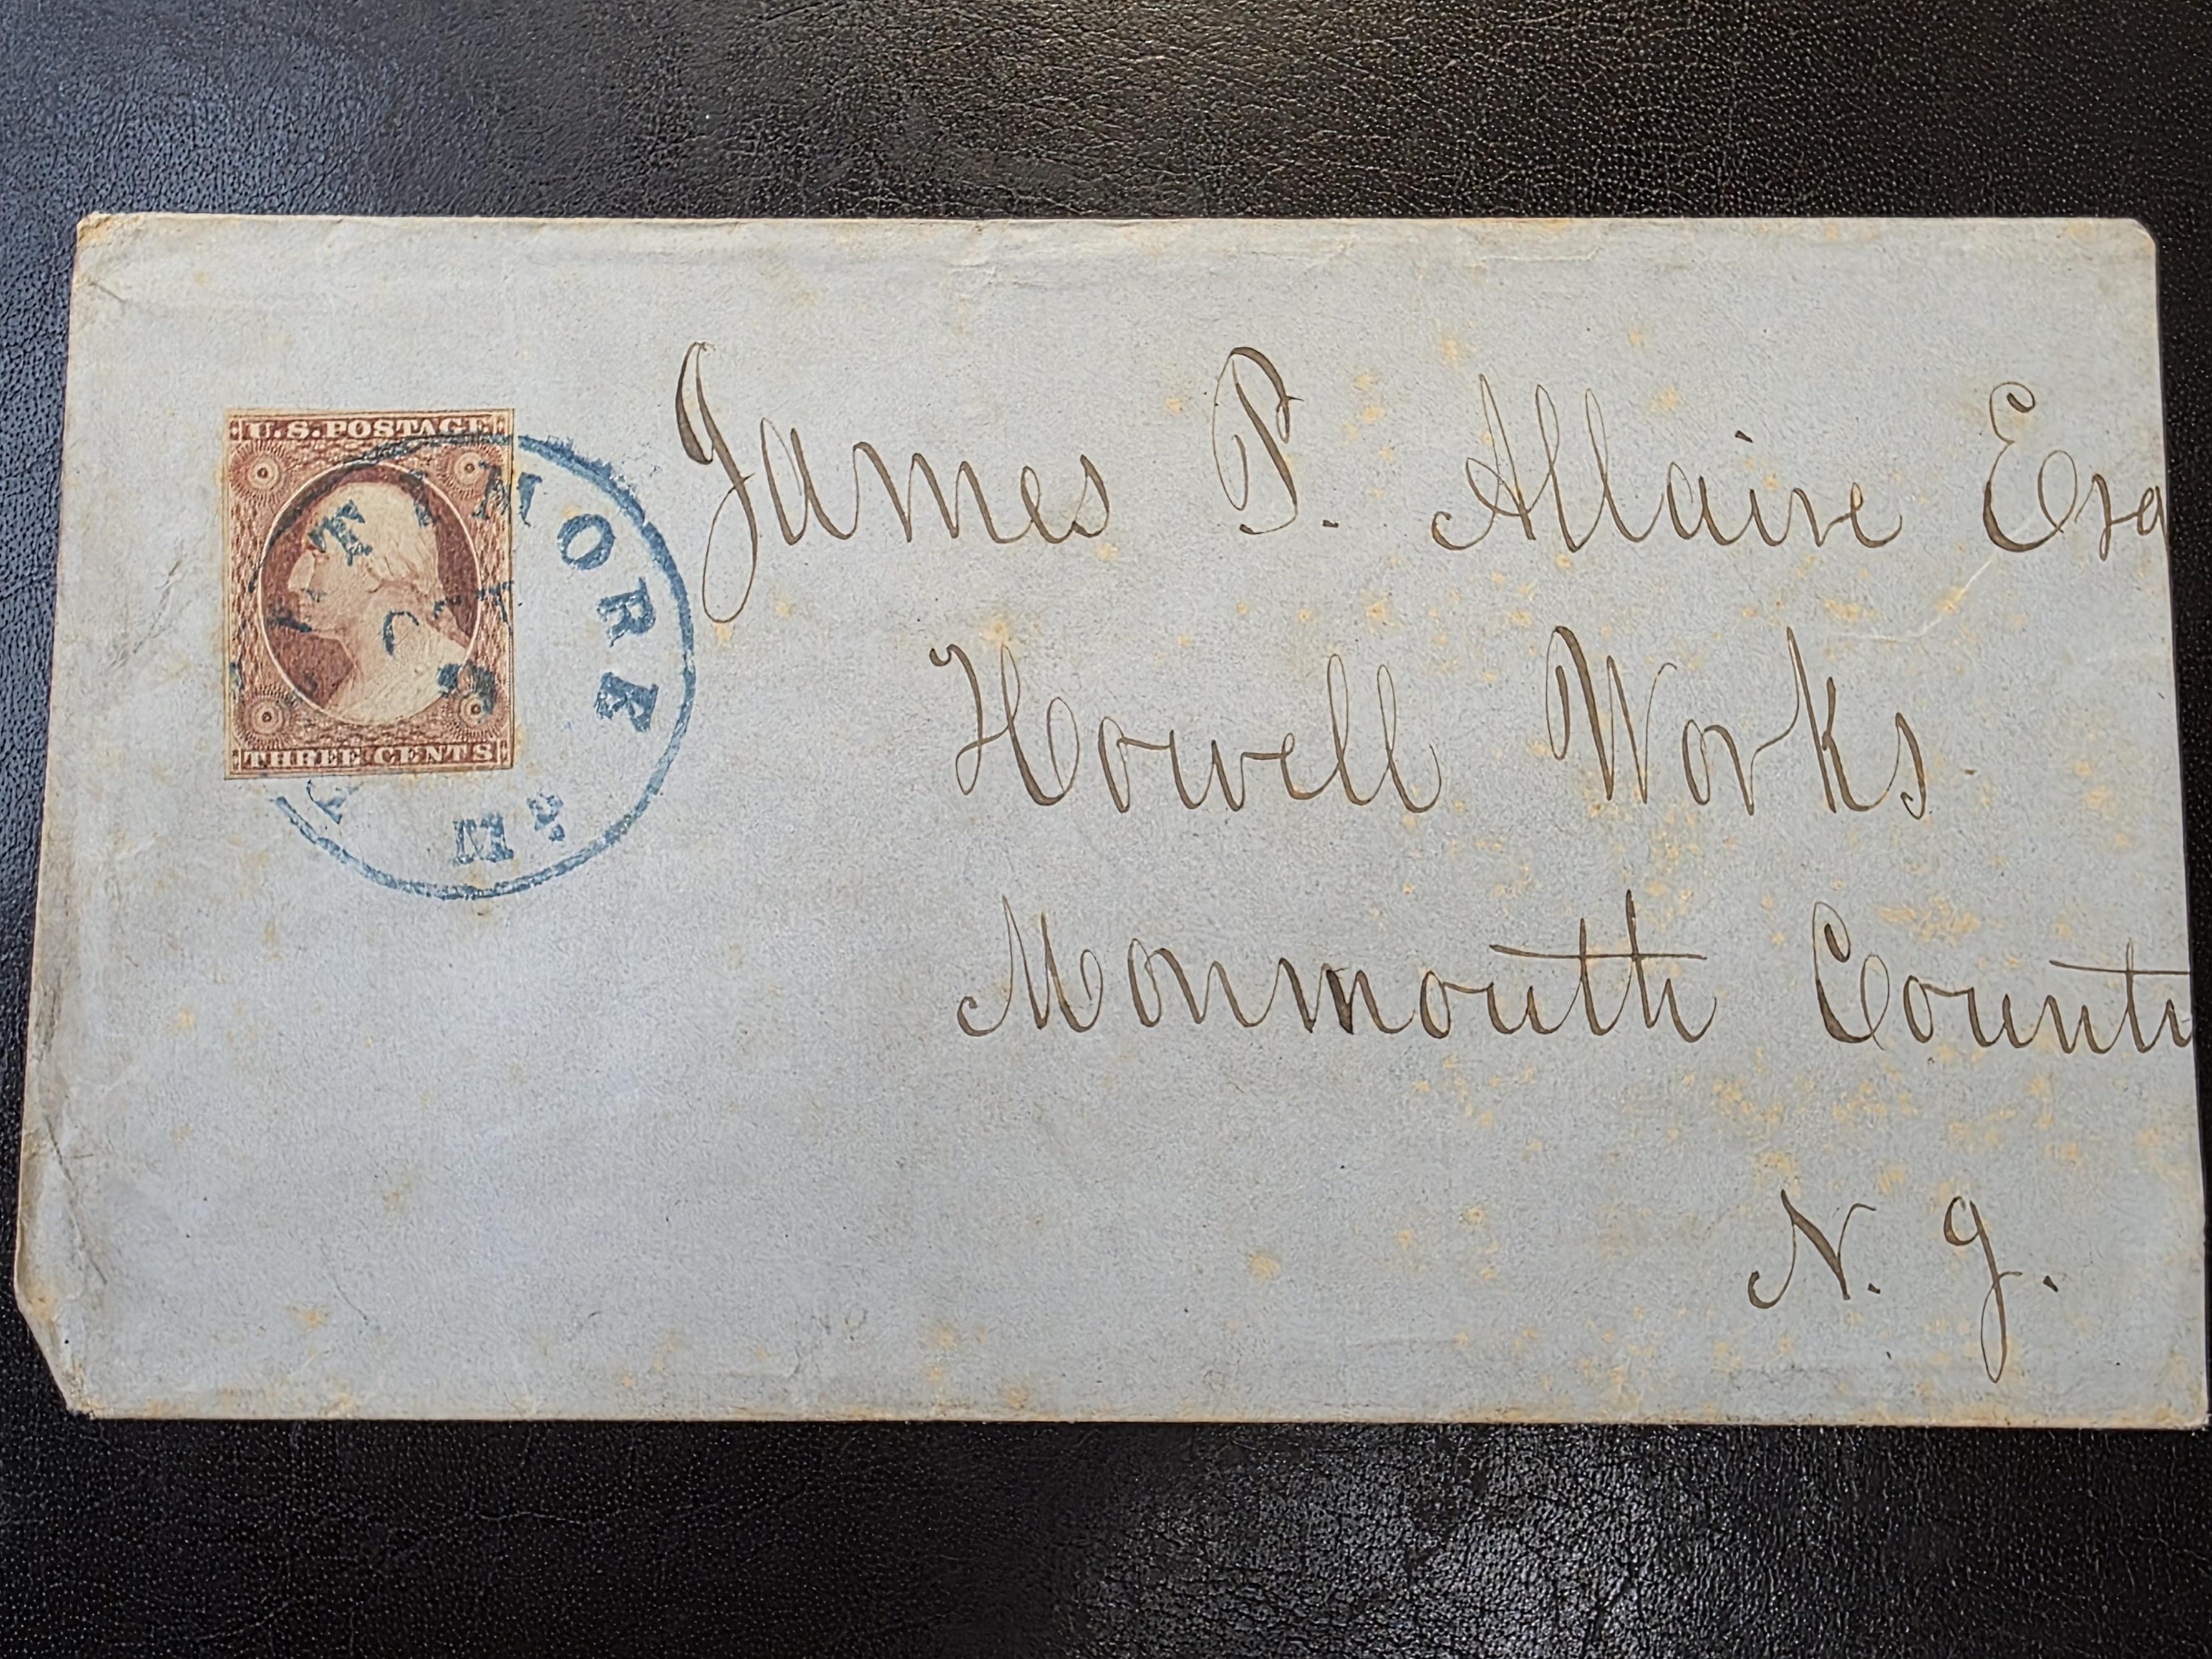 U.S. POSTAGE
THREE CENTS
LTIMORE
OCT
Md.
James P. Allaire Esq
Howell Works
Monmouth County
N. J.